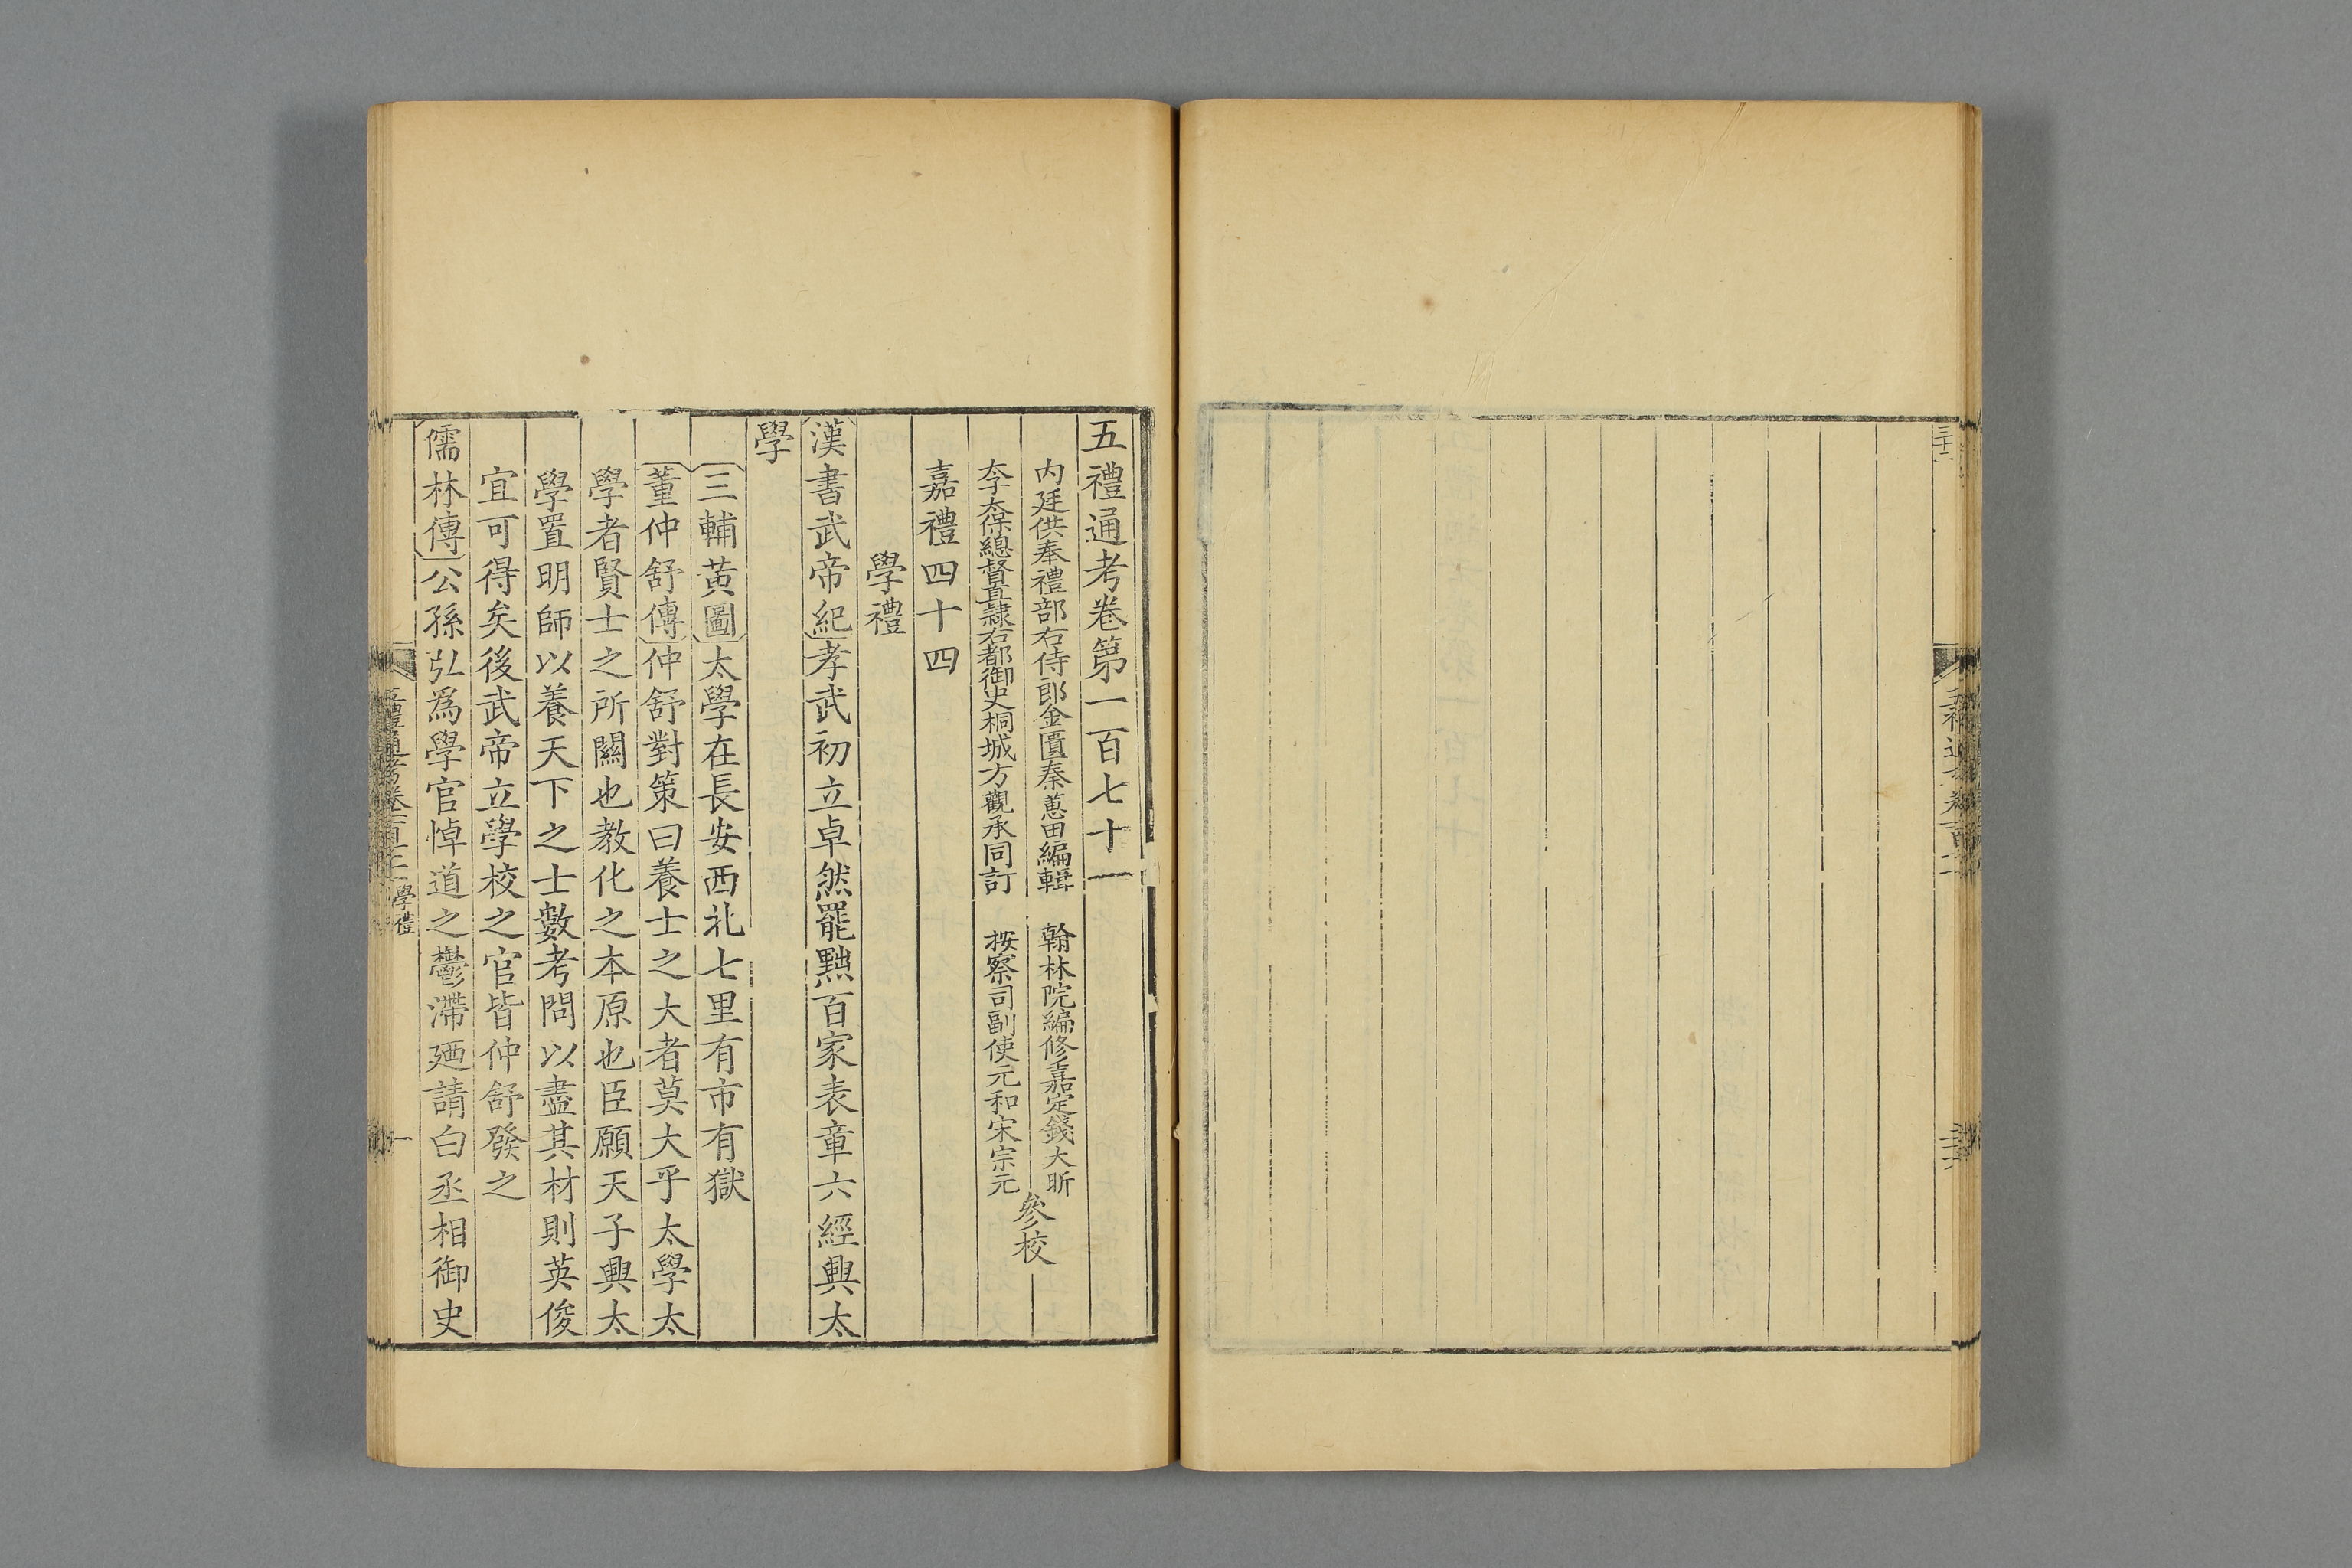 五禮通考卷第一百七十一
內廷供奉禮部右侍郎金匱秦蕙田編輯　翰林院編修嘉定錢大昕
太子太保總督直隸右都御史桐城方觀承同訂　按察司副使元和宋宗元
參校
嘉禮四十四
學禮
漢書武帝紀孝武初立卓然罷黜百家表章六經興太
學
三輔黃圖太學在長安西北七里有市有獄
董仲舒傳仲舒對策曰養士之大者莫大乎太學太
學者賢士之所關也教化之本原也臣願天子興太
學置明師以養天下之士數考問以盡其材則英俊
宜可得矣後武帝立學校之官皆仲舒發之
儒林傳公孫弘爲學官悼道之鬱滯廼請白丞相御史
學禮
一